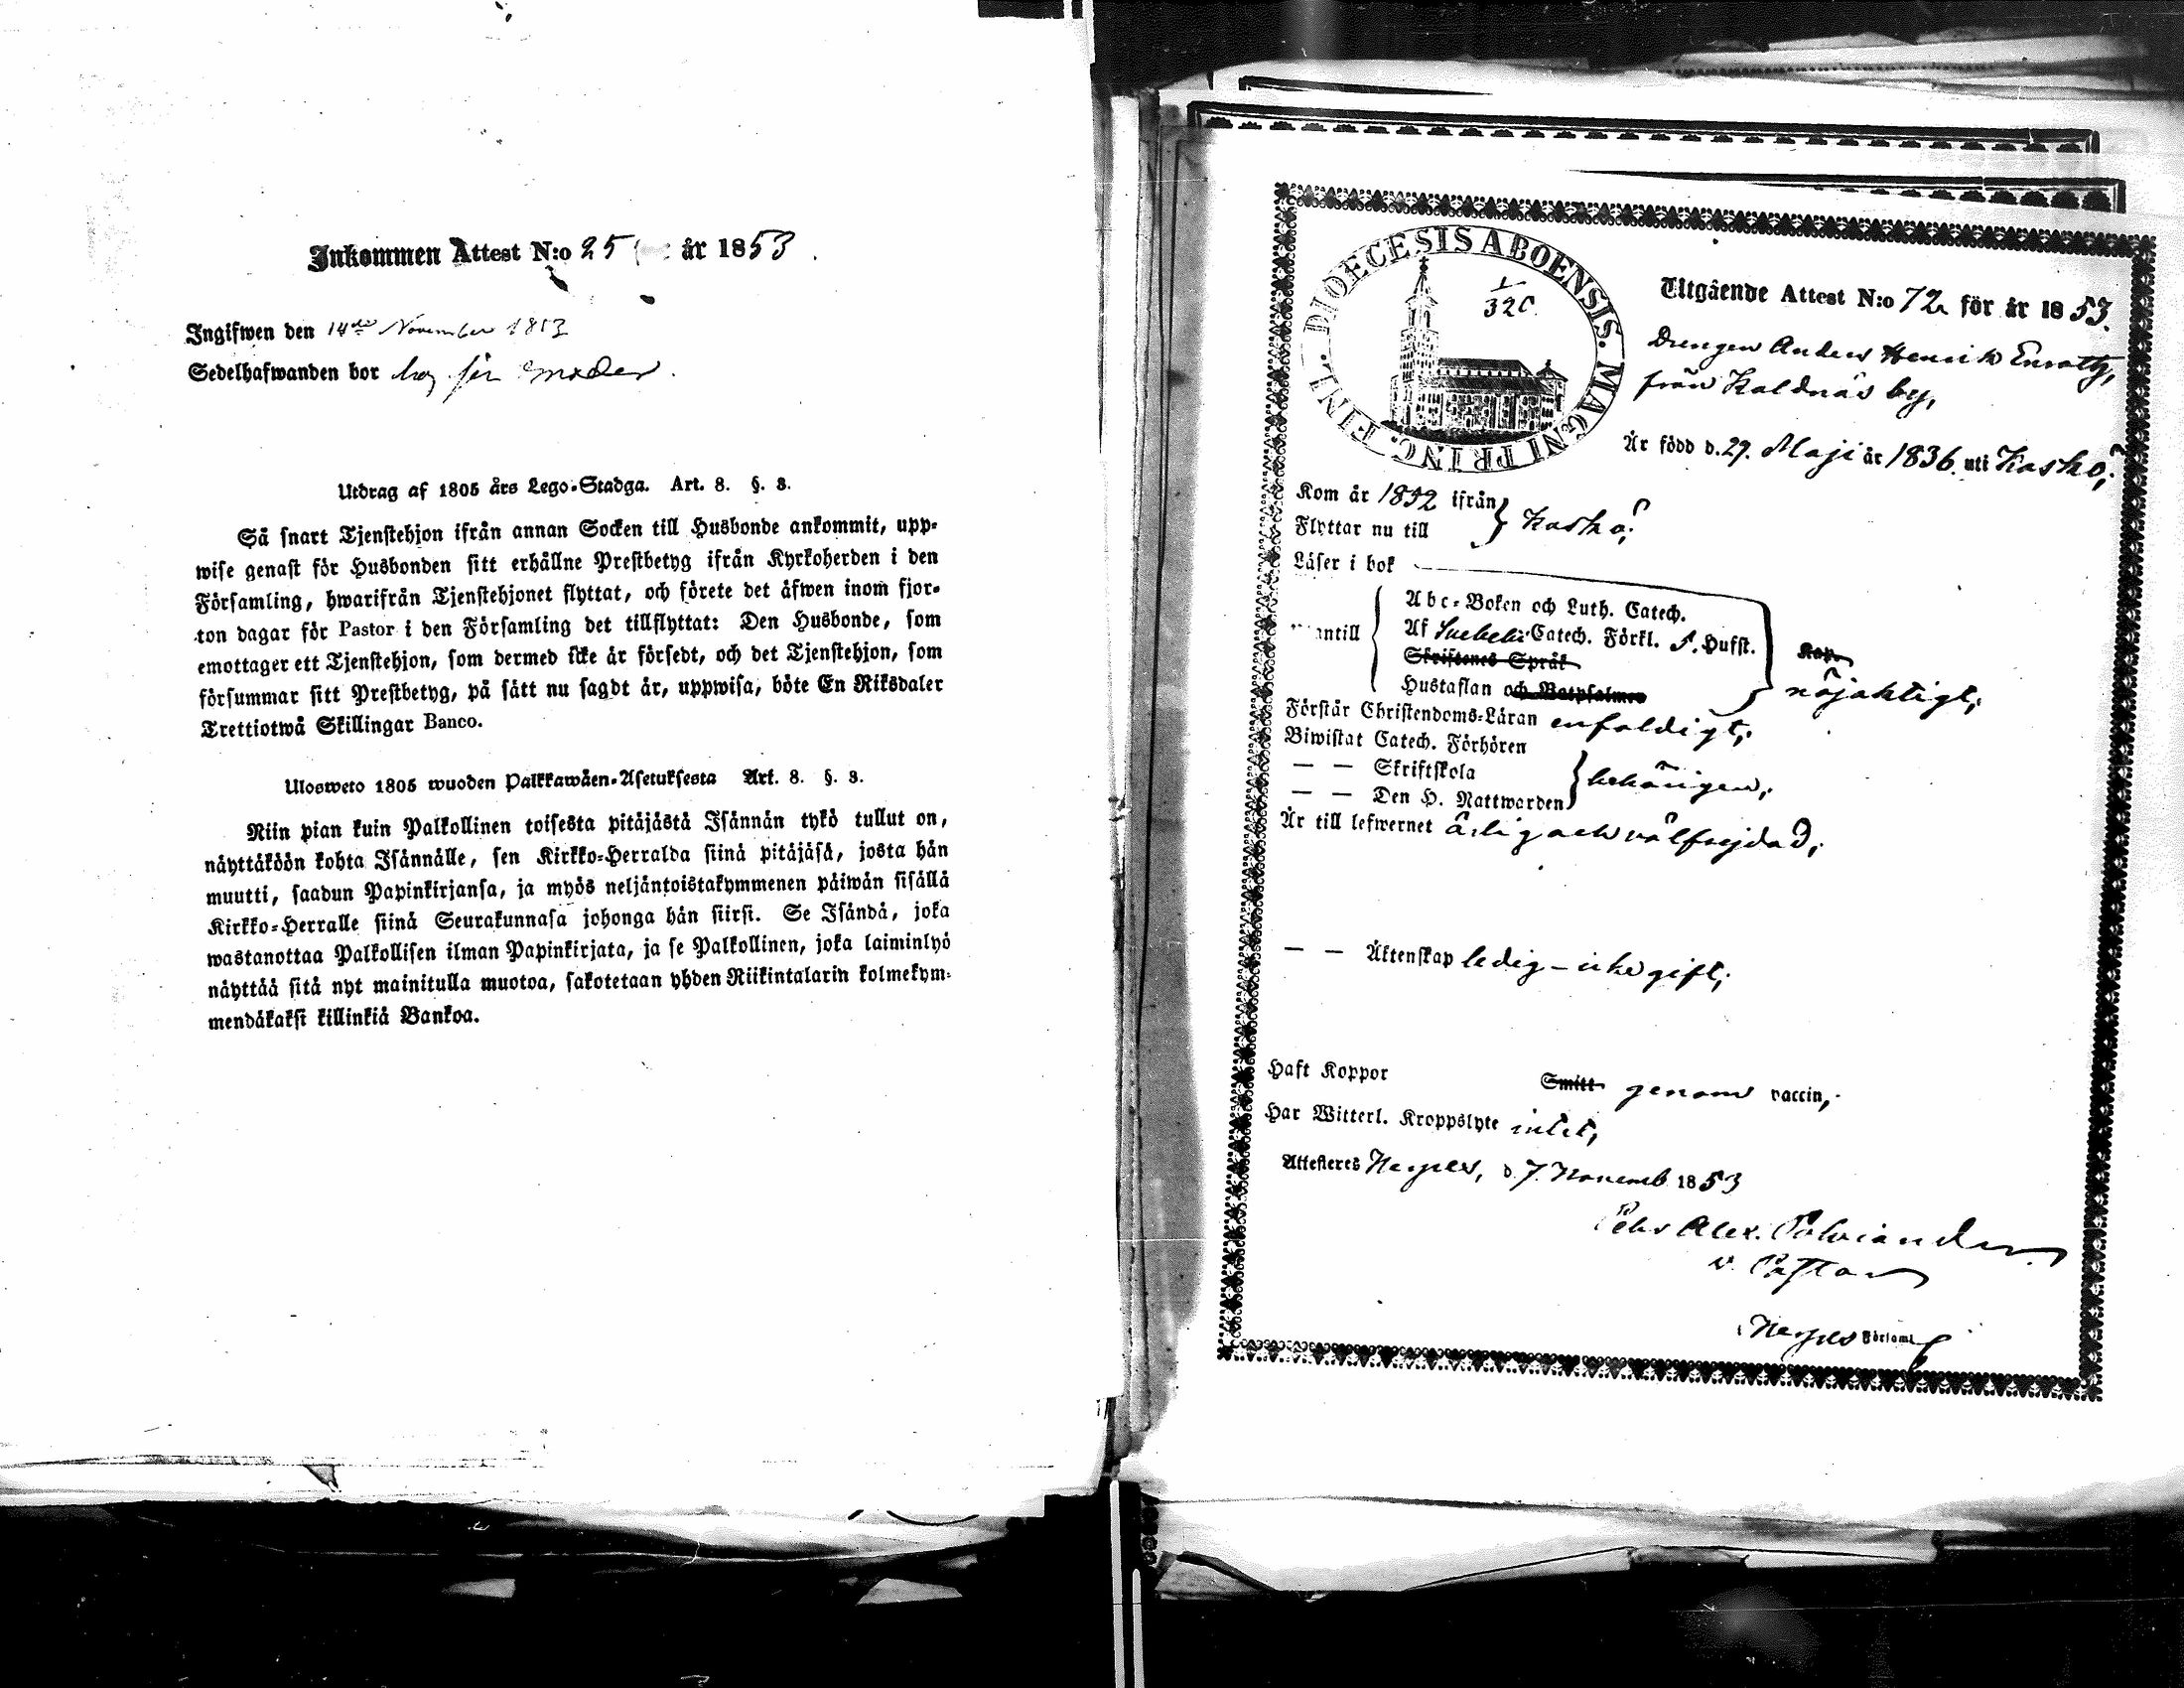 Inkommen Attest N:o 25 år 1853
Ingifwen den 14de November 1853
Sedelhafwanden bor hos sin moder.
Utdrag af 1805 års Lego-Stadga. Art. 8. §. 3.
Så snart Tjenstehjon ifrån annan Socken till Husbonde ankommit, upp-
wise genast för Husbonden sitt erhållne Prestbetyg ifrån Kyrkoherden i den
Församling, hwarifrån Tjenstehjonet flyttat, och förete det äfwen inom fjor-
ton dagar för Pastor i den Församling det tillflyttat: Den Husbonde, som
emottager ett Tjenstehjon, som dermed icke är försedt, och det Tjenstehjon, som
försummar sitt Prestbetyg, på sätt nu sagdt är, uppwisa, böte En Riksdaler
Trettiotwå Skillingar Banco.
Ulosweto 1805 wuoden Palkkawäen-Asetuksesta Art. 8. §. 3.
Niin pian kuin Palkollinen toisesta pitäjästä Isännän tykö tullut on,
näyttäköön kohta Isännälle, sen Kirkko-Herralda siinä pitäjäsä, josta hän
muutti, saadun Papinkirjansa, ja myös neljäntoistakymmenen päiwän sisällä
Kirkko-Herralle siinä Seurakunnasa johonga hän siirsi. Se Isändä, joka
wastanottaa Palkollisen ilman Papinkirjata, ja se Palkollinen, joka laiminlyö
näyttää sitä nyt mainitulla muotoa, sakotetaan yhden Riikintalarin kolmekym-
mendäkaksi killinkiä Bankoa.
DIOECESIS ABOENSIS. MAGNI PRINC. FINL.
1/320.
Utgående Attest N:o 72 för år 1853.
Drengen Anders Henrik Enrotth,
från Kaldnäs by,
Är född d. 29. Maji år 1836. uti Kaskö,
Kom år 1852 ifrån
Flyttar nu till } Kaskö,
Läser i bok
antill
Abc-Boken och Luth. Catech.
Af Swebelii Catech. Förkl. o. Hufst.
Skriftenes Språk
Hustaflan och Botpsalmer
nöjaktigt,
Förstår Christendoms-Läran enfaldigt,
Biwistat Catech. Förhören
— — Skriftskola
— — Den H. Nattwarden } behörigen,
Är till lefwernet ärlig och välfrejdad,
— — Äktenskap ledig – icke gift,
Haft Koppor Smitt genom vaccin,
Har Witterl. Kroppslyte intet,
Attesteras Nerpes, d. 7. Novemb. 1853
Petr Alex. Polviander
v. Pastor
i Nerpes Församl.